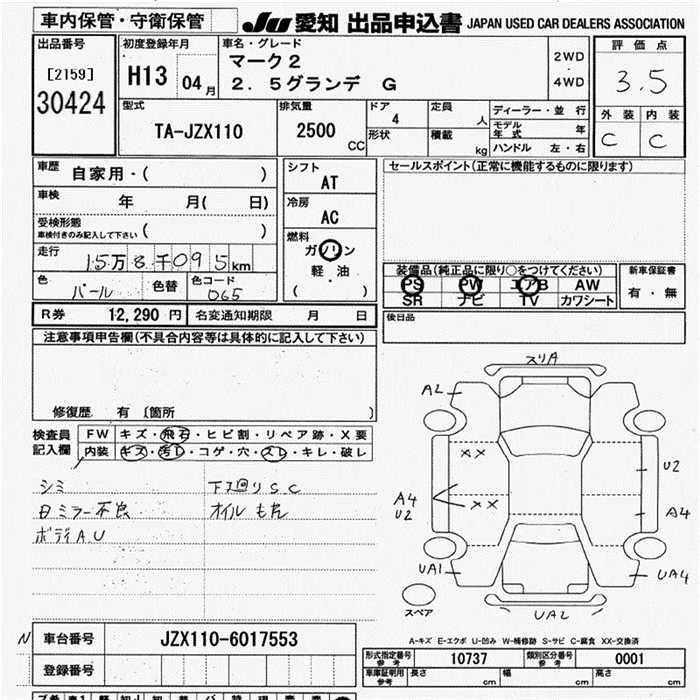 車内保管・守衛保管 JU 愛知 出品申込書 JAPAN USED CAR DEALERS ASSOCIATION
出品番号
[2159]
30424
初度登録年月
H13 04月
車名・グレード
マーク2
2.5グランデ G
2WD
・
4WD
評価点
3.5
外装 内装
C C
型式
TA-JZX110
排気量
2500
CC
ドア
4
形状
定員
人
積載
kg
ディーラー・並行
モデル年式 年
ハンドル 左・右
車歴 自家用・( )
車検 年 月( 日)
受検形態
車検付きのみ記入して下さい ( )
走行
15万8千095km
色
パール
色替
色コード
065
シフト
AT
冷房
AC
燃料
ガソリン
軽・油
( )
セールスポイント(正常に機能するものに限ります)
装備品(純正品に限り○をつけてください)
PS PW エアB AW
SR ナビ TV カワシート
新車保証書
有・無
R券 12,290円 名変通知期限 月 日
後日品
注意事項申告欄(不具合内容等は具体的に記入して下さい)
修復歴 有 [箇所 ]
検査員
記入欄
FW キズ・飛石・ヒビ割・リペア跡・X要
内装 キズ・汚レ・コゲ・穴・スレ・キレ・破レ
シミ 下廻りSC
日ミラー不良 オイルもれ
ボディAU
スリA
A2
XX
U2
A4
U2
XX
A4
UA1
UA4
スペア
UA2
A-キズ E-エクボ U-凹み W-補修跡 S-サビ C-腐食 XX-交換済
N 車台番号 JZX110-6017553
登録番号
形式指定番号
参考
10737
類別区分番号
参考
0001
車庫証明用
参考
長さ cm 幅 cm 高さ cm